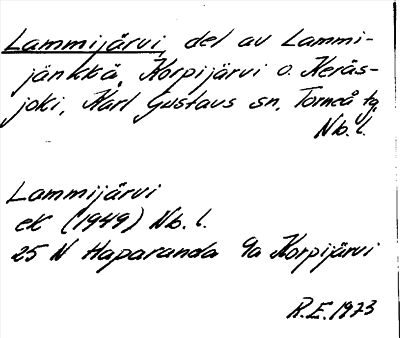 Lammijärvi, del av Lammi-
jänkkä, Korpijärvi o. Keräs-
joki, Karl Gustavs sn, Torneå tg,
Nb. l.
Lammijärvi
ek (1949) Nb. l.
25 N Haparanda 9a Korpijärvi
R.E. 1973